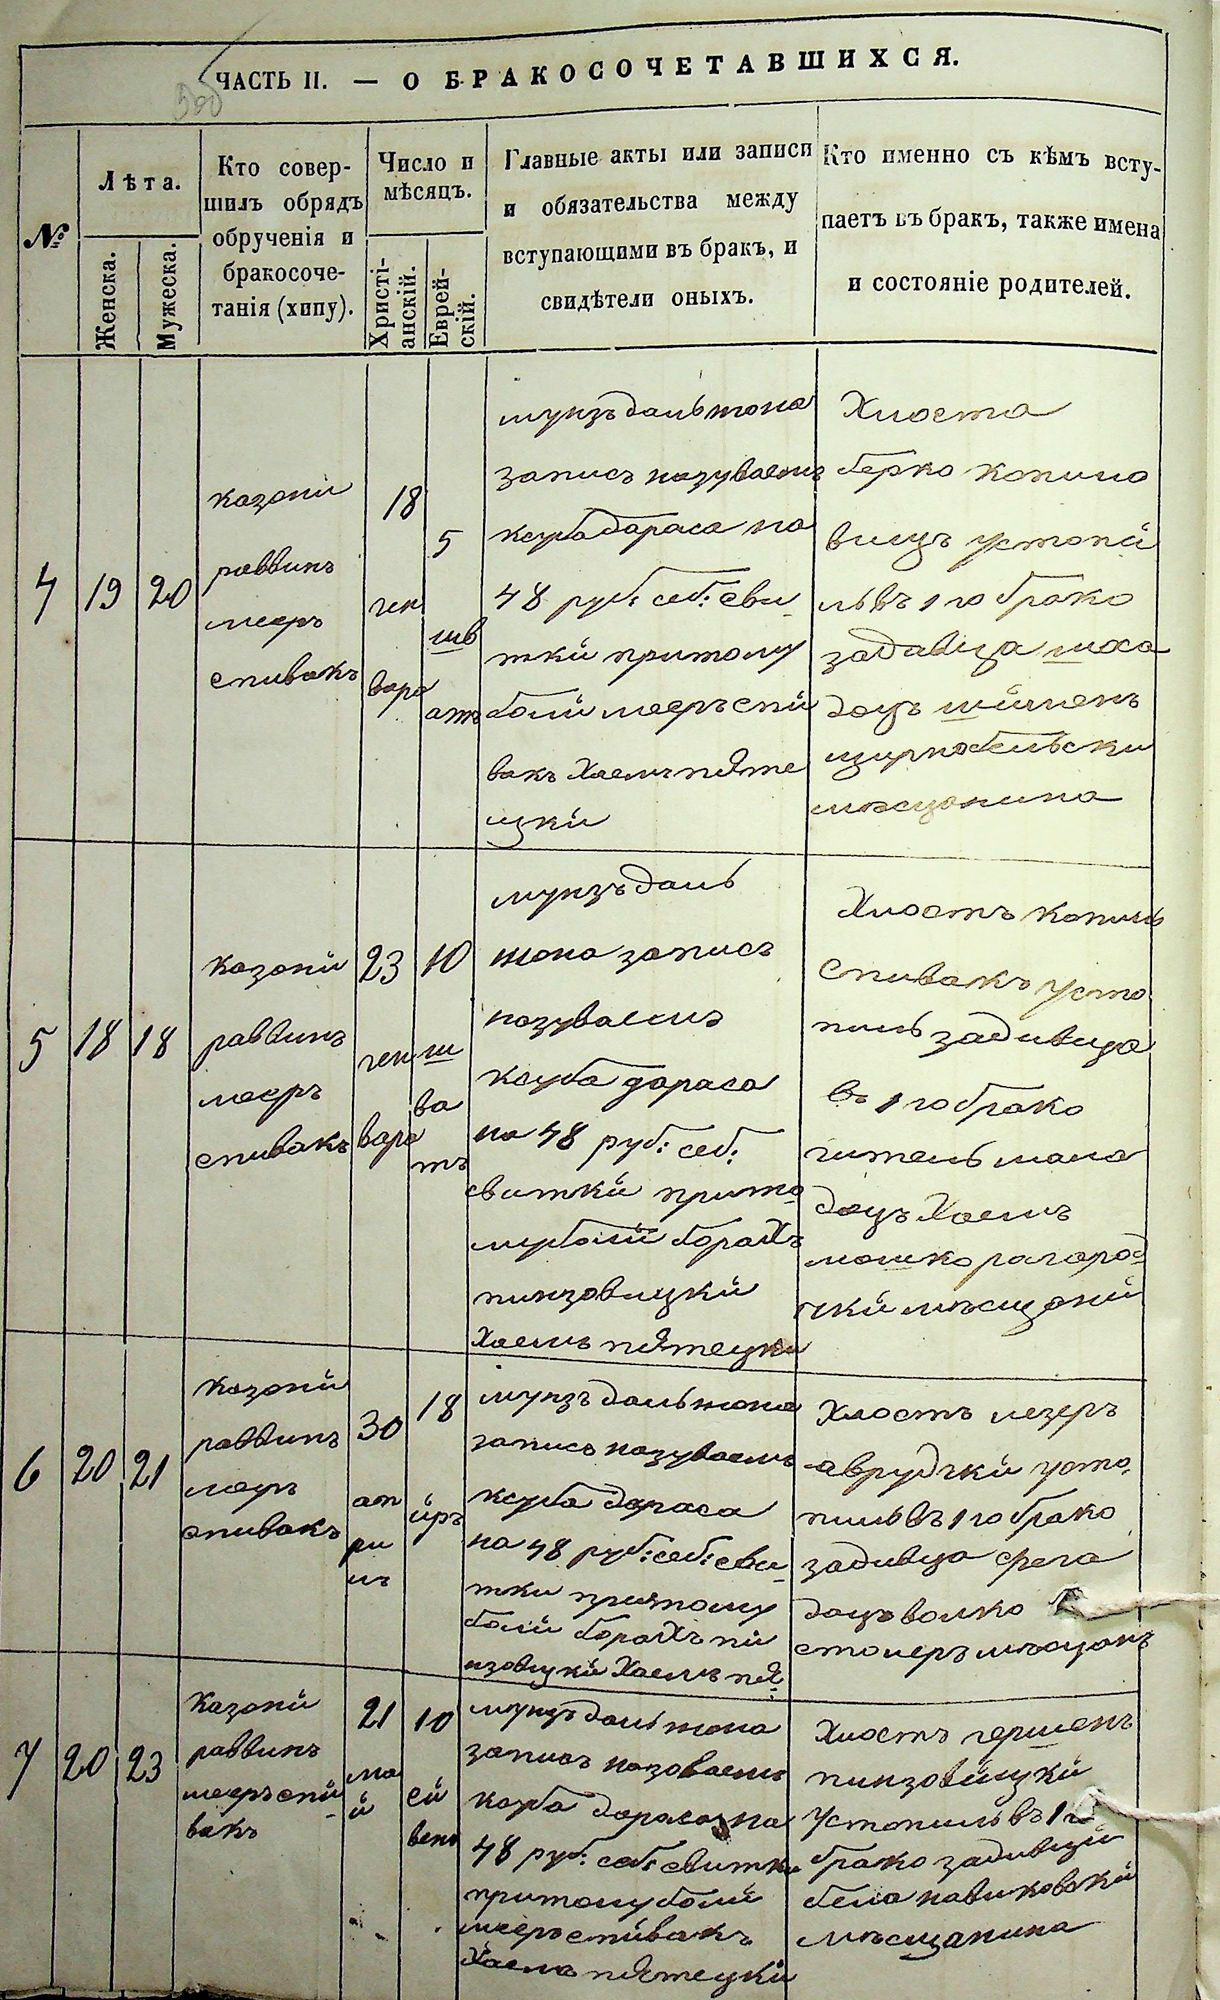 ЧАСТЬ II. — О БРАКОСОЧЕТАВШИХСЯ.
№
Лѣта.
Женска.
Мужеска.
Кто совер-
шилъ обрядъ
обрученія и
бракосоче-
танія (хипу).
Число и
мѣсяцъ.
Христі-
анскій.
Еврей-
скій.
Главные акты или записи
и обязательства между
вступающими въ бракъ, и
свидѣтели оныхъ.
Кто именно съ кѣмъ всту-
паетъ въ бракъ, также имена
и состояніе родителей.
4
19
20
казони
раввинъ
меер
спивакъ
18
ген
варо
5
шв
атъ
мунзъ даль тона
записъ назуваемъ
ксуба дараса на
48 руб: себ: сви
тки притому
боли мееръ спи
вакъ Хаемъ пяте
цки
Хлоста
берко копило
вицъ устопи
львъ 1 го брако
задавица
доцъ шименъ
мѣсцонина
5
18
18
казони
раввинъ
меер
спивакъ
23
ген
варо
10
ш
ва
тъ
мунзъ даль
тона записъ
назуваемъ
ксуба дараса
на 48 руб: себ:
свитки прито
муболи борахъ
пинзовицки
Хаемъ пятецки
Хлостъ копиль
спивакъ усто
пиль задивица
въ 1 го брако
гитель мала
доцъ Хаемъ
мошко рагород
чки мѣсцони
6
20
21
казони
раввинъ
меер
спивакъ
30
ап
ри
ль
18
йръ
мунзъ даль тона
записъ назуваемъ
ксуба дараса
на 48 руб: себ: сви
тки притому
боли борахъ пи
нзовицки Хаемъ пя
Хлостъ лезеръ
аврудчки усто
пильвъ 1 го брако
задивица фрега
доцъ волко
столеръ мѣсцонъ
7
20
23
казони
раввинъ
мееръ спи
вакъ
21
ма
й
10
си
венъ
мунзъ даль тона
записъ назоваемъ
ксуба дараса на
48 руб: себ: свитки
притому боли
мееръ спивакъ
Хаемъ пятецки
Хлостъ гершенъ
пинзовицки
устопильвъ 1 го
брако задивици
бела новиковски
мѣсцанина